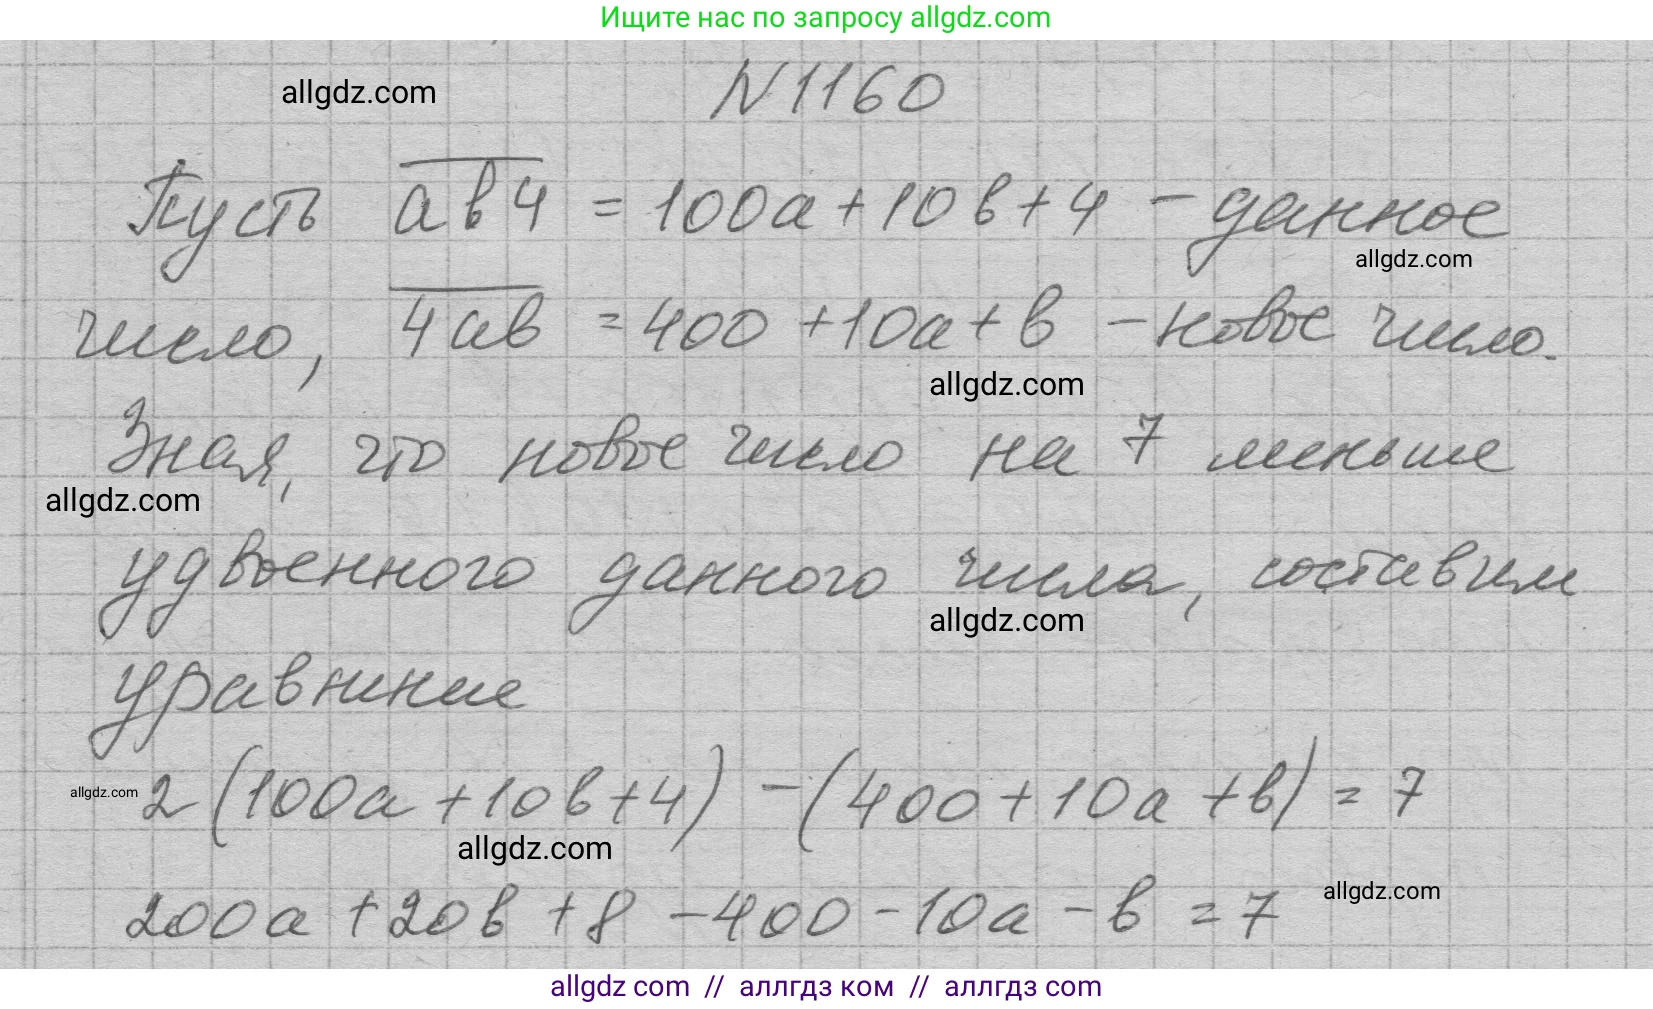 Ищите нас по запросу allgdz.com
allgdz.com
N1160
Пусть ав4 = 100а + 10в + 4 - данное
allgdz.com
число, 4ав = 400 + 10а + в - новое число.
allgdz.com
Зная, что новое число на 7 меньше
allgdz.com
удвоенного данного числа, составим
allgdz.com
уравнение
allgdz.com 2(100а + 10в + 4) - (400 + 10а + в) = 7
allgdz.com
200а + 20в + 8 - 400 - 10а - в = 7
allgdz.com
allgdz com // аллгдз ком // аллгдз com